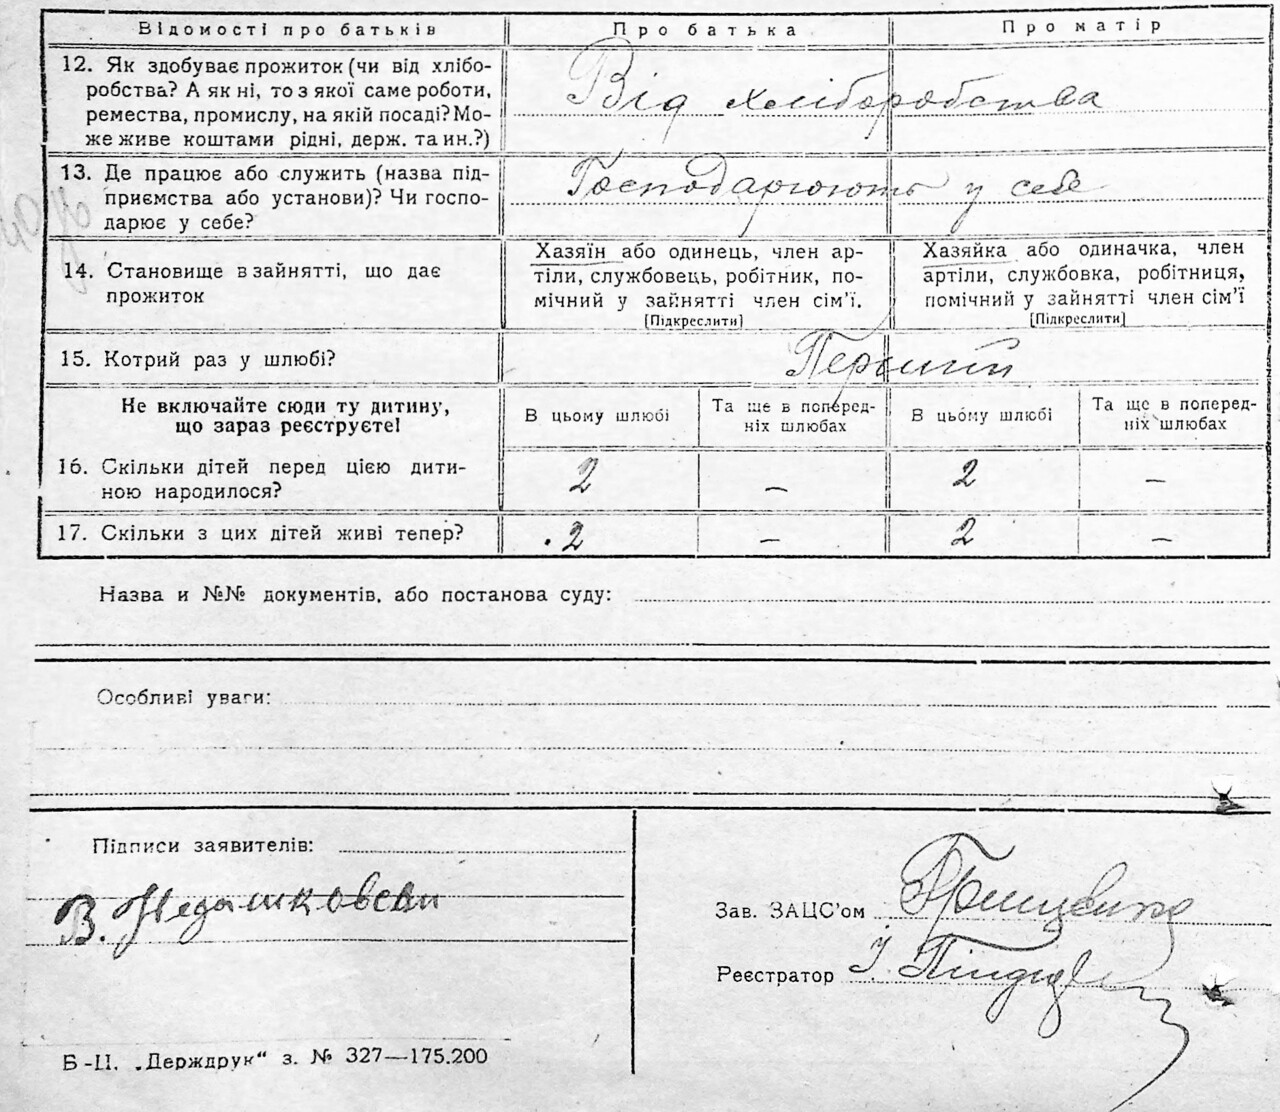 Відомості про батьків Про батька Про матір
12. Як здобуває прожиток (чи від хлібо-
робства? А як ні, то з якої саме роботи,
ремества, промислу, на якій посаді? Мо-
же живе коштами рідні, держ. та ин.?)
Від хліборобства
13. Де працює або служить (назва під-
приємства або установи)? Чи госпо-
дарює у себе?
Господарюють у себе
14. Становище в зайнятті, що дає
прожиток
Хазяїн або одинець, член ар-
тіли, службовець, робітник, по-
мічний у зайнятті член сім'ї.
[Підкреслити]
Хазяйка або одиначка, член
артіли, службовка, робітниця,
помічний у зайнятті член сім'ї
[Підкреслити]
15. Котрий раз у шлюбі?
Перший
Не включайте сюди ту дитину,
що зараз реєструєте!
В цьому шлюбі
Та ще в поперед-
ніх шлюбах
В цьому шлюбі
Та ще в поперед-
ніх шлюбах
16. Скільки дітей перед цією дити-
ною народилося?
2 – 2 –
17. Скільки з цих дітей живі тепер? 2 – 2 –
Назва и №№ документів, або постанова суду:
Особливі уваги:
Підписи заявителів:
В. Недашковски
Зав. ЗАЦС'ом
Реєстратор
Б-П. „Держдрук“ з. № 327—175.200